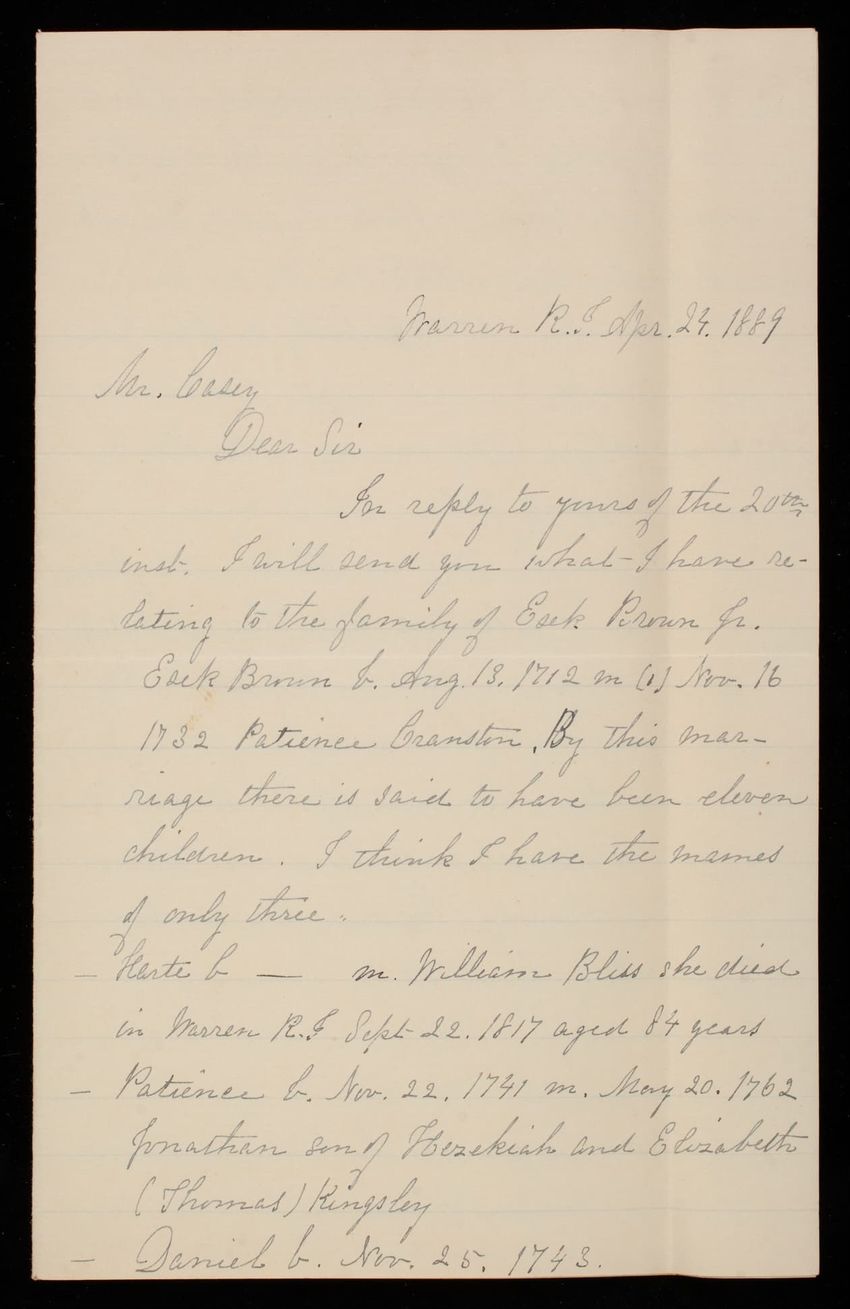 Warren R.I. Apr. 24. 1889
Mr. Casey
Dear Sir
In reply to yours of the 20th
inst. I will send you what I have re-
lating to the family of Esek Brown Jr.
Esek Brown b. Aug. 13. 1712 m (1) Nov. 16
1732 Patience Cranston. By this mar-
riage there is said to have been eleven
children. I think I have the names
of only three.
— b — m. William Bliss she died
in Warren R.I Sept 22. 1817 aged 84 years
— Patience b. Nov. 22. 1741 m. May 20. 1762
Jonathan son of Hezekiah and Elizabeth
(Thomas) Kingsley
— Daniel b. Nov. 25. 1743.